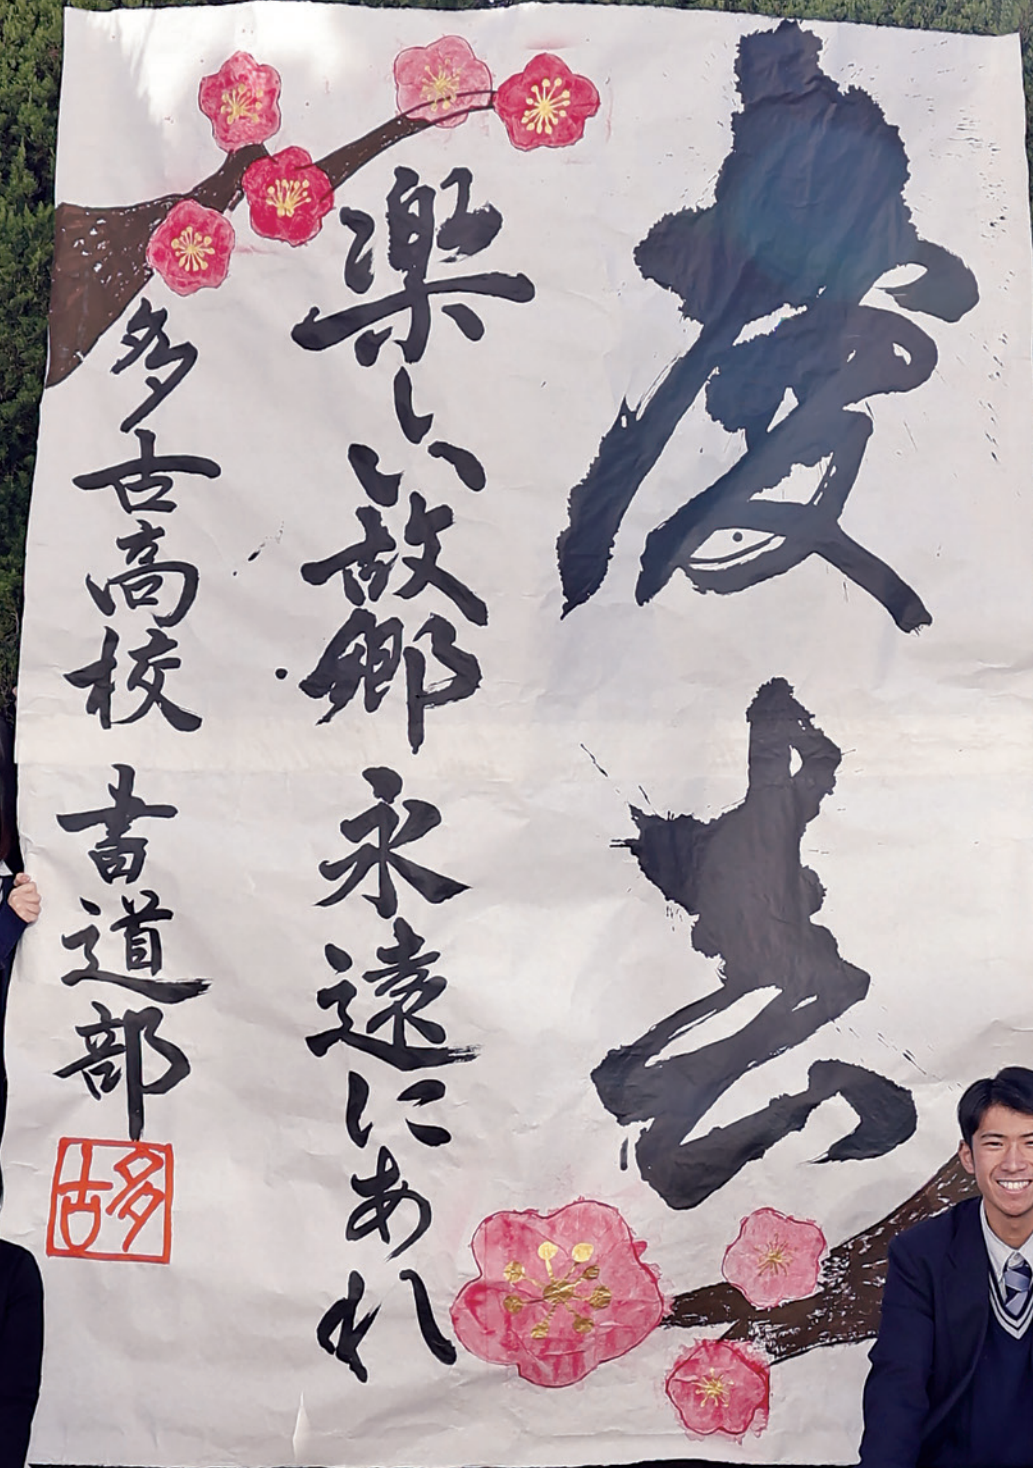 慶吉
楽しい故郷 永遠にあれ
多古高校 書道部
多古